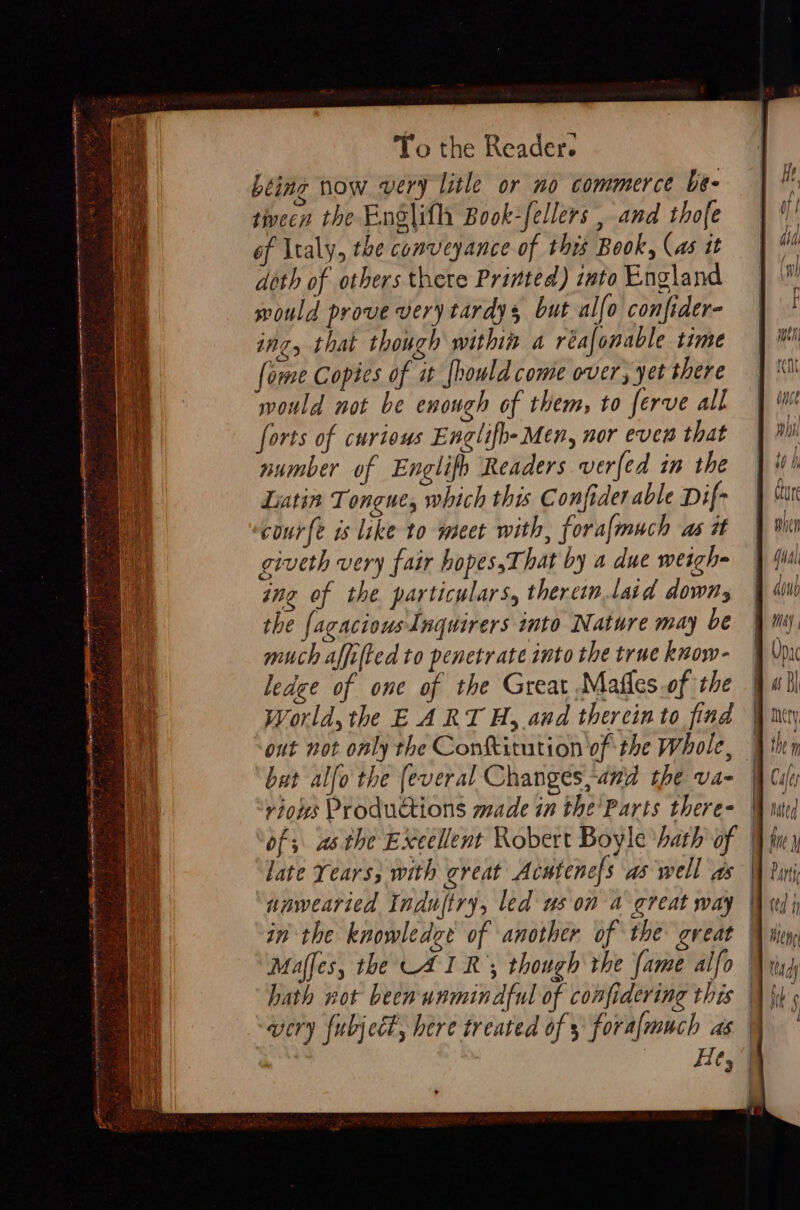 To the Reader.
being now very litle or no commerce be-
tween the Engliſh Book-ſellers, and thoſe
of Italy, the conveyance of this Book, (as it
doth of others there Printed) into England
would prove very tardy; but alſo conſider-
ing, that though within a reaſonable time
ſome Copies of it ſhould come over, yet there
would not be enough of them, to ſerve all
ſorts of curious Engliſh-Men, nor even that
number of Engliſh Readers verſed in the
Latin Tongue, which this Conſiderable Diſ-
courſe is like to meet with, foraſmuch as it
giveth very fair hopes, That by a due weigh-
ing of the particulars, therein laid down,
the ſagacious Inquirers into Nature may be
much aſſiſted to penetrate into the true know-
ledge of one of the Great Maſſes of the
World, the EARTH, and therein to find
out not only the Conſtitution of the Whole,
but alſo the ſeveral Changes, and the va-
rious Productions made in the Parts there-
of; as the Excellent Robert Boyle hath of
late Years, with great Acuteneſs as well as
unwearied Induſtry, led us on a great way
in the knowledge of another of the great
Maſſes, the AIR; though the ſame alſo
hath not been unmindful of conſidering this
very ſubject, here treated of; foraſmuch as
He,